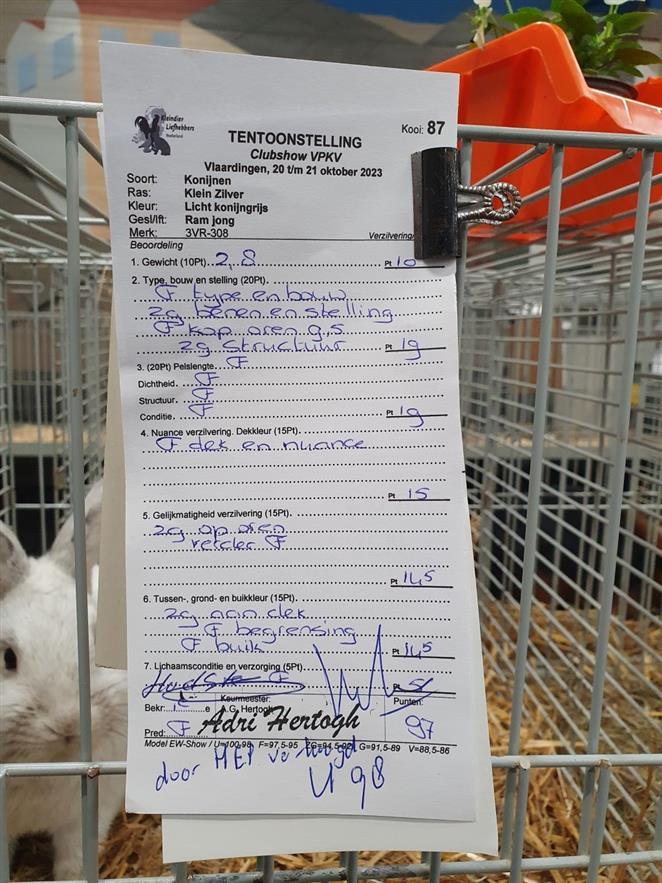 Kleindier
Liefhebbers
Nederland
Kooi: 87
TENTOONSTELLING
Clubshow VPKV
Vlaardingen, 20 t/m 21 oktober 2023
Soort: Konijnen
Ras: Klein Zilver
Kleur: Licht konijngrijs
Gesl/lft: Ram jong
Merk: 3VR-308
Verzilvering
Beoordeling
1. Gewicht (10Pt). 2,8 Pt 10
2. Type, bouw en stelling (20Pt).
F type en bouw
zg benen en stelling
F kop oren 9,5
zg structuur Pt 19
3. (20Pt) Pelslengte. F
Dichtheid. F
Structuur. F
Conditie. F Pt 19
4. Nuance verzilvering. Dekkleur (15Pt).
F dek en nuance
Pt 15
5. Gelijkmatigheid verzilvering (15Pt).
zg op oren
verder F
Pt 14,5
6. Tussen-, grond- en buikkleur (15Pt).
zg aan dek
F begrensing
F buik Pt 14,5
7. Lichaamsconditie en verzorging (5Pt).
F Pt 5
Bekr: 1 e Keurmeester: Punten:
A.G. Hertogh
Pred: F Adri Hertogh 97
Model EW-Show / U=100-98 F=97,5-95 ZG=94,5-92 G=91,5-89 V=88,5-86
door
U 98